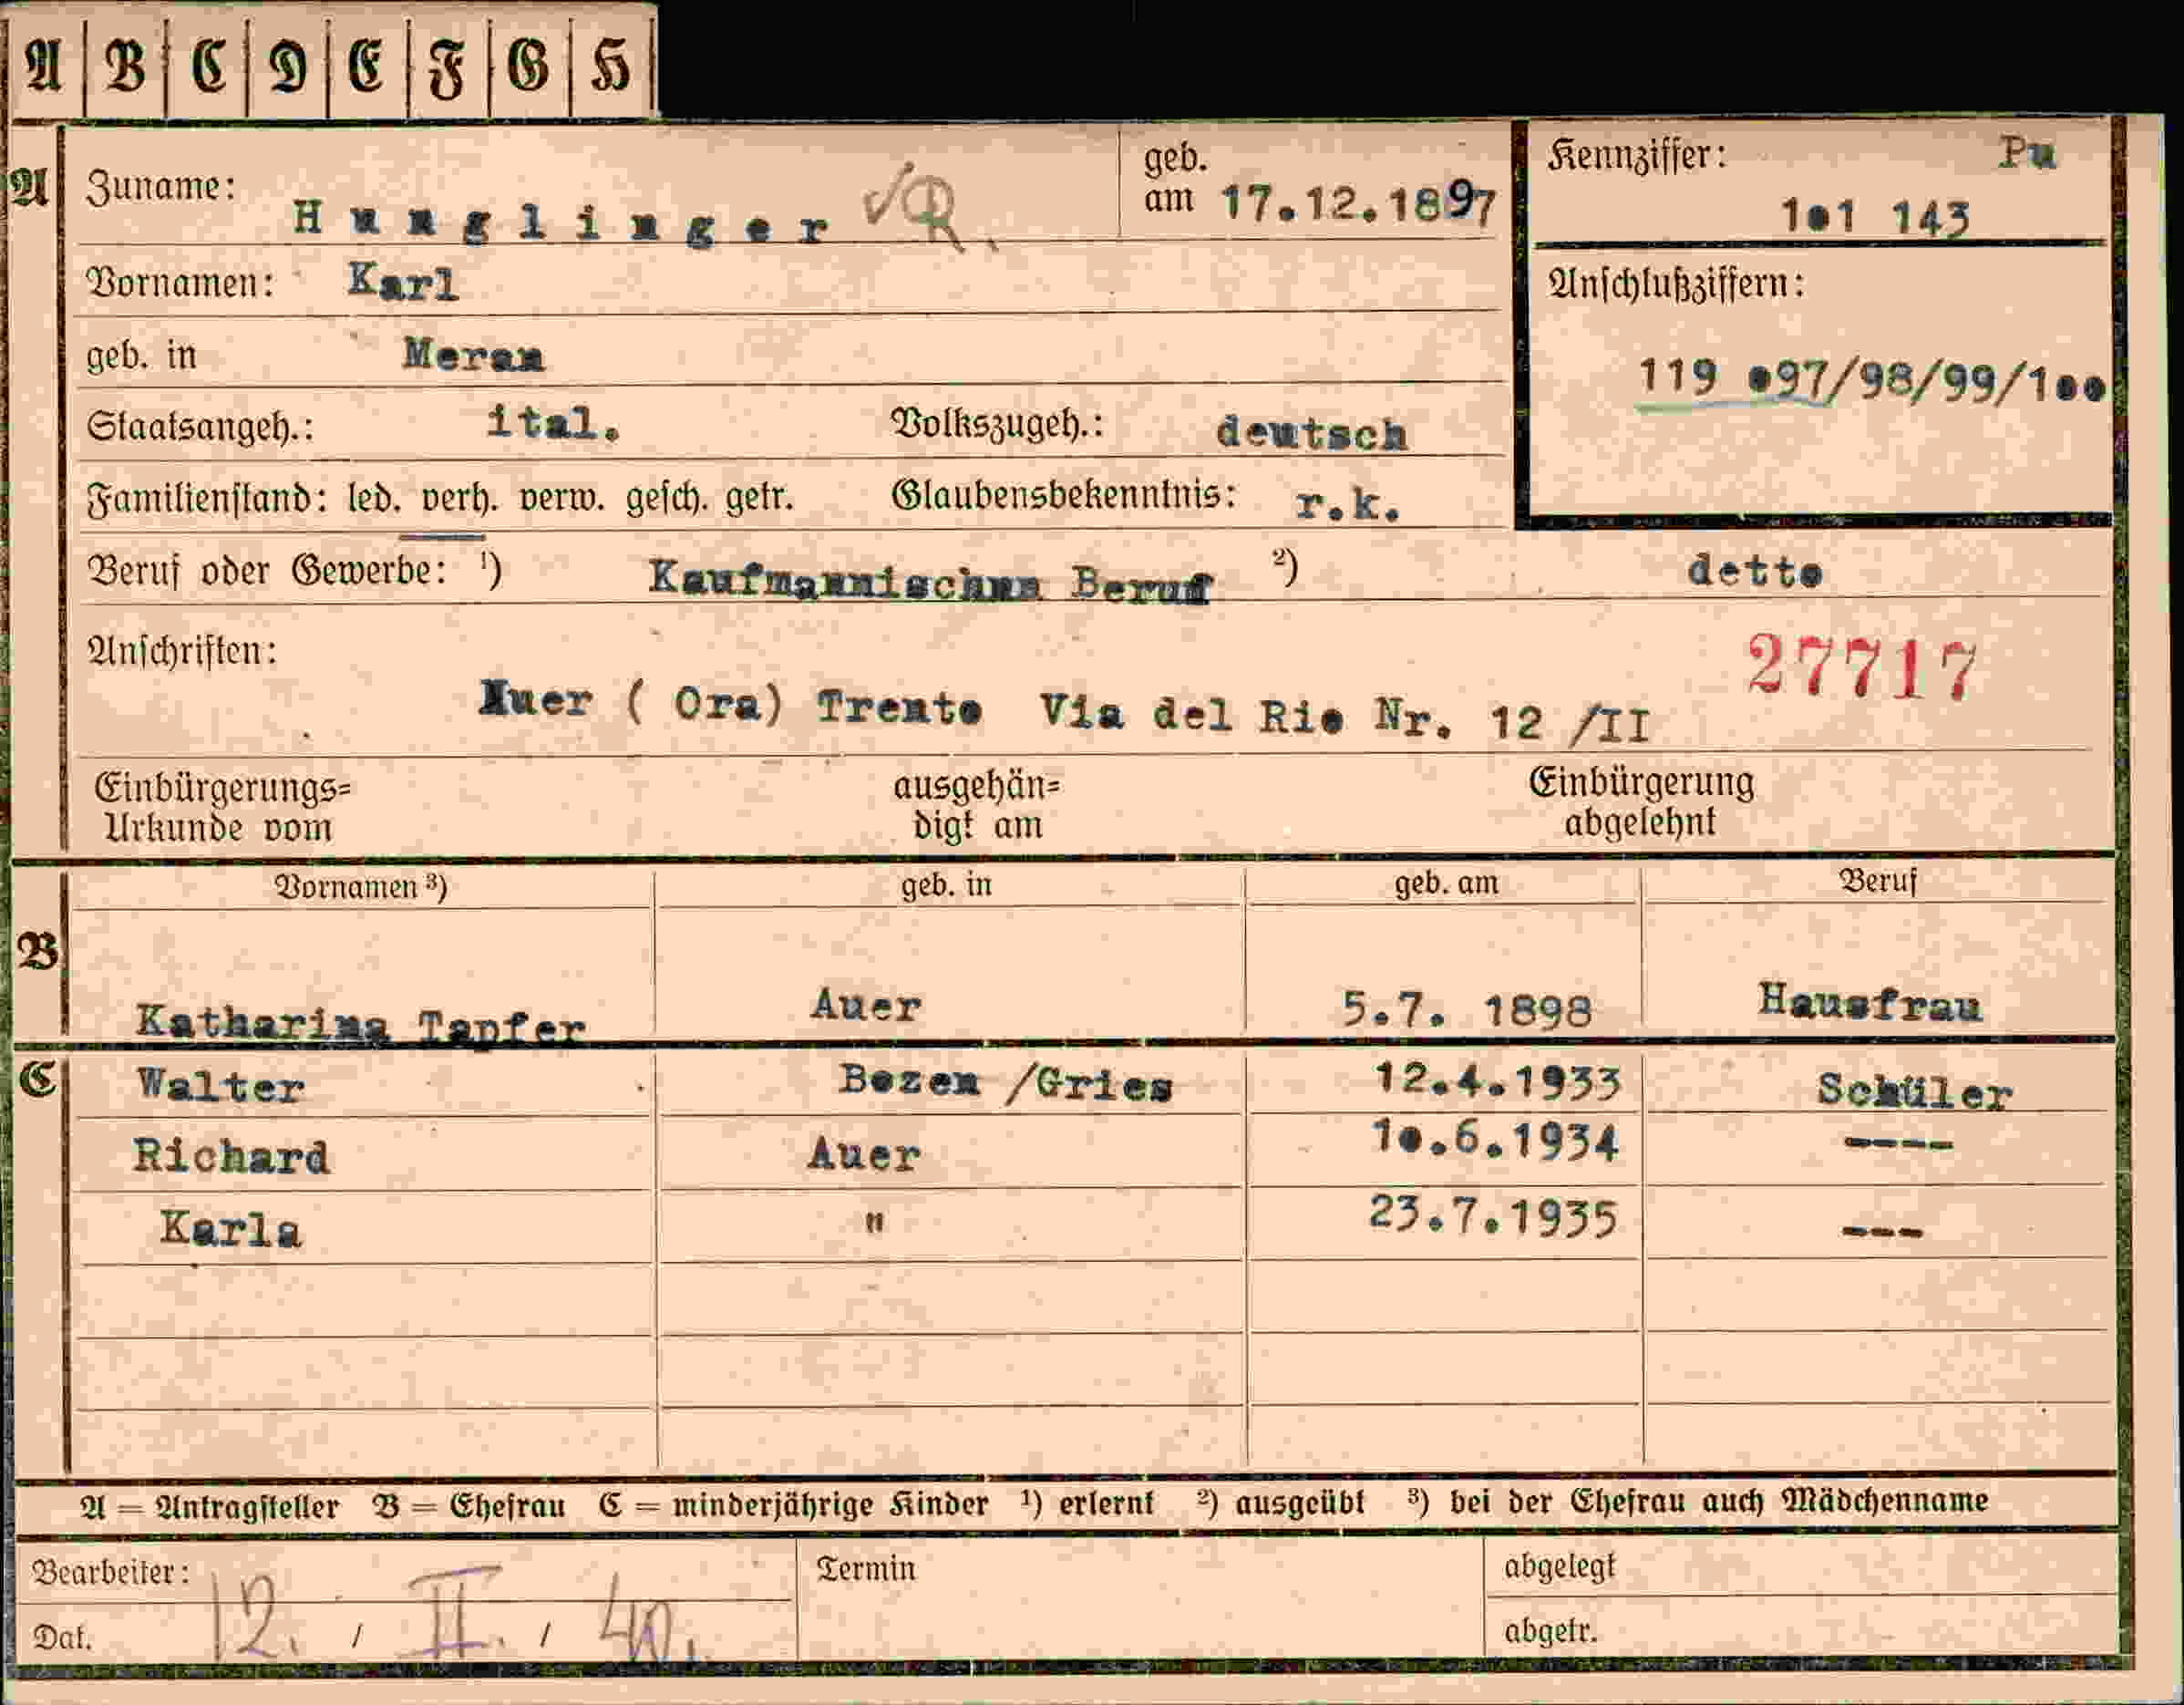 A B C D E F G H
A Zuname: Hunglinger geb. am 17.12.1897
Kennziffer: Pu
101 143
Vornamen: Karl
Anschlußziffern:
geb. in Meran
119 097/98/99/100
Staatsangeh.: ital. Volkszugeh.: deutsch
Familienstand: led. verh. verw. gesch. getr. Glaubensbekenntnis: r.k.
Beruf oder Gewerbe: ¹) Kaufmannischen Beruf ²) detto
Anschriften: 27717
Auer ( Ora) Trento Via del Rio Nr. 12 /II
Einbürgerungs= ausgehän= Einbürgerung
Urkunde vom digt am abgelehnt
Vornamen ³) geb. in geb. am Beruf
B Katharina Tapfer Auer 5.7. 1898 Hausfrau
C Walter Bozen /Gries 12.4.1933 Schüler
Richard Auer 10.6.1934 ----
Karla " 23.7.1935 ---
A = Antragsteller B = Ehefrau C = minderjährige Kinder ¹) erlernt ²) ausgeübt ³) bei der Ehefrau auch Mädchenname
Bearbeiter: Termin abgelegt
Dat. 12. / II. / 40. abgetr.